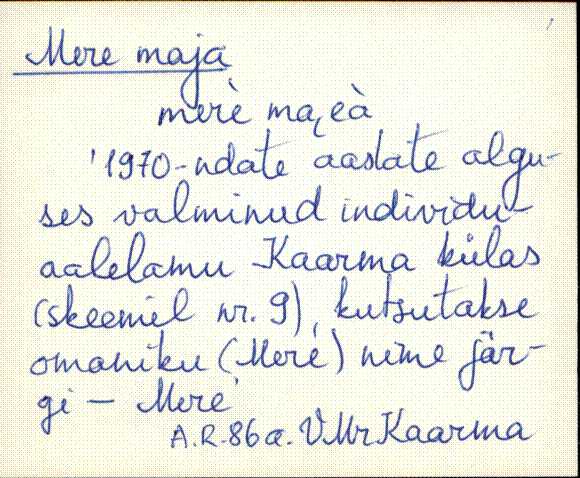 Mere maja
merè ma͔eà
'1970-ndate aastate algu-
ses valminud individu-
aalelamu Kaarma külas
(skeemil nr. 9), kutsutakse
omaniku (Mere) nime jär-
gi — Mere'
A.R. 86 a. VMr Kaarma